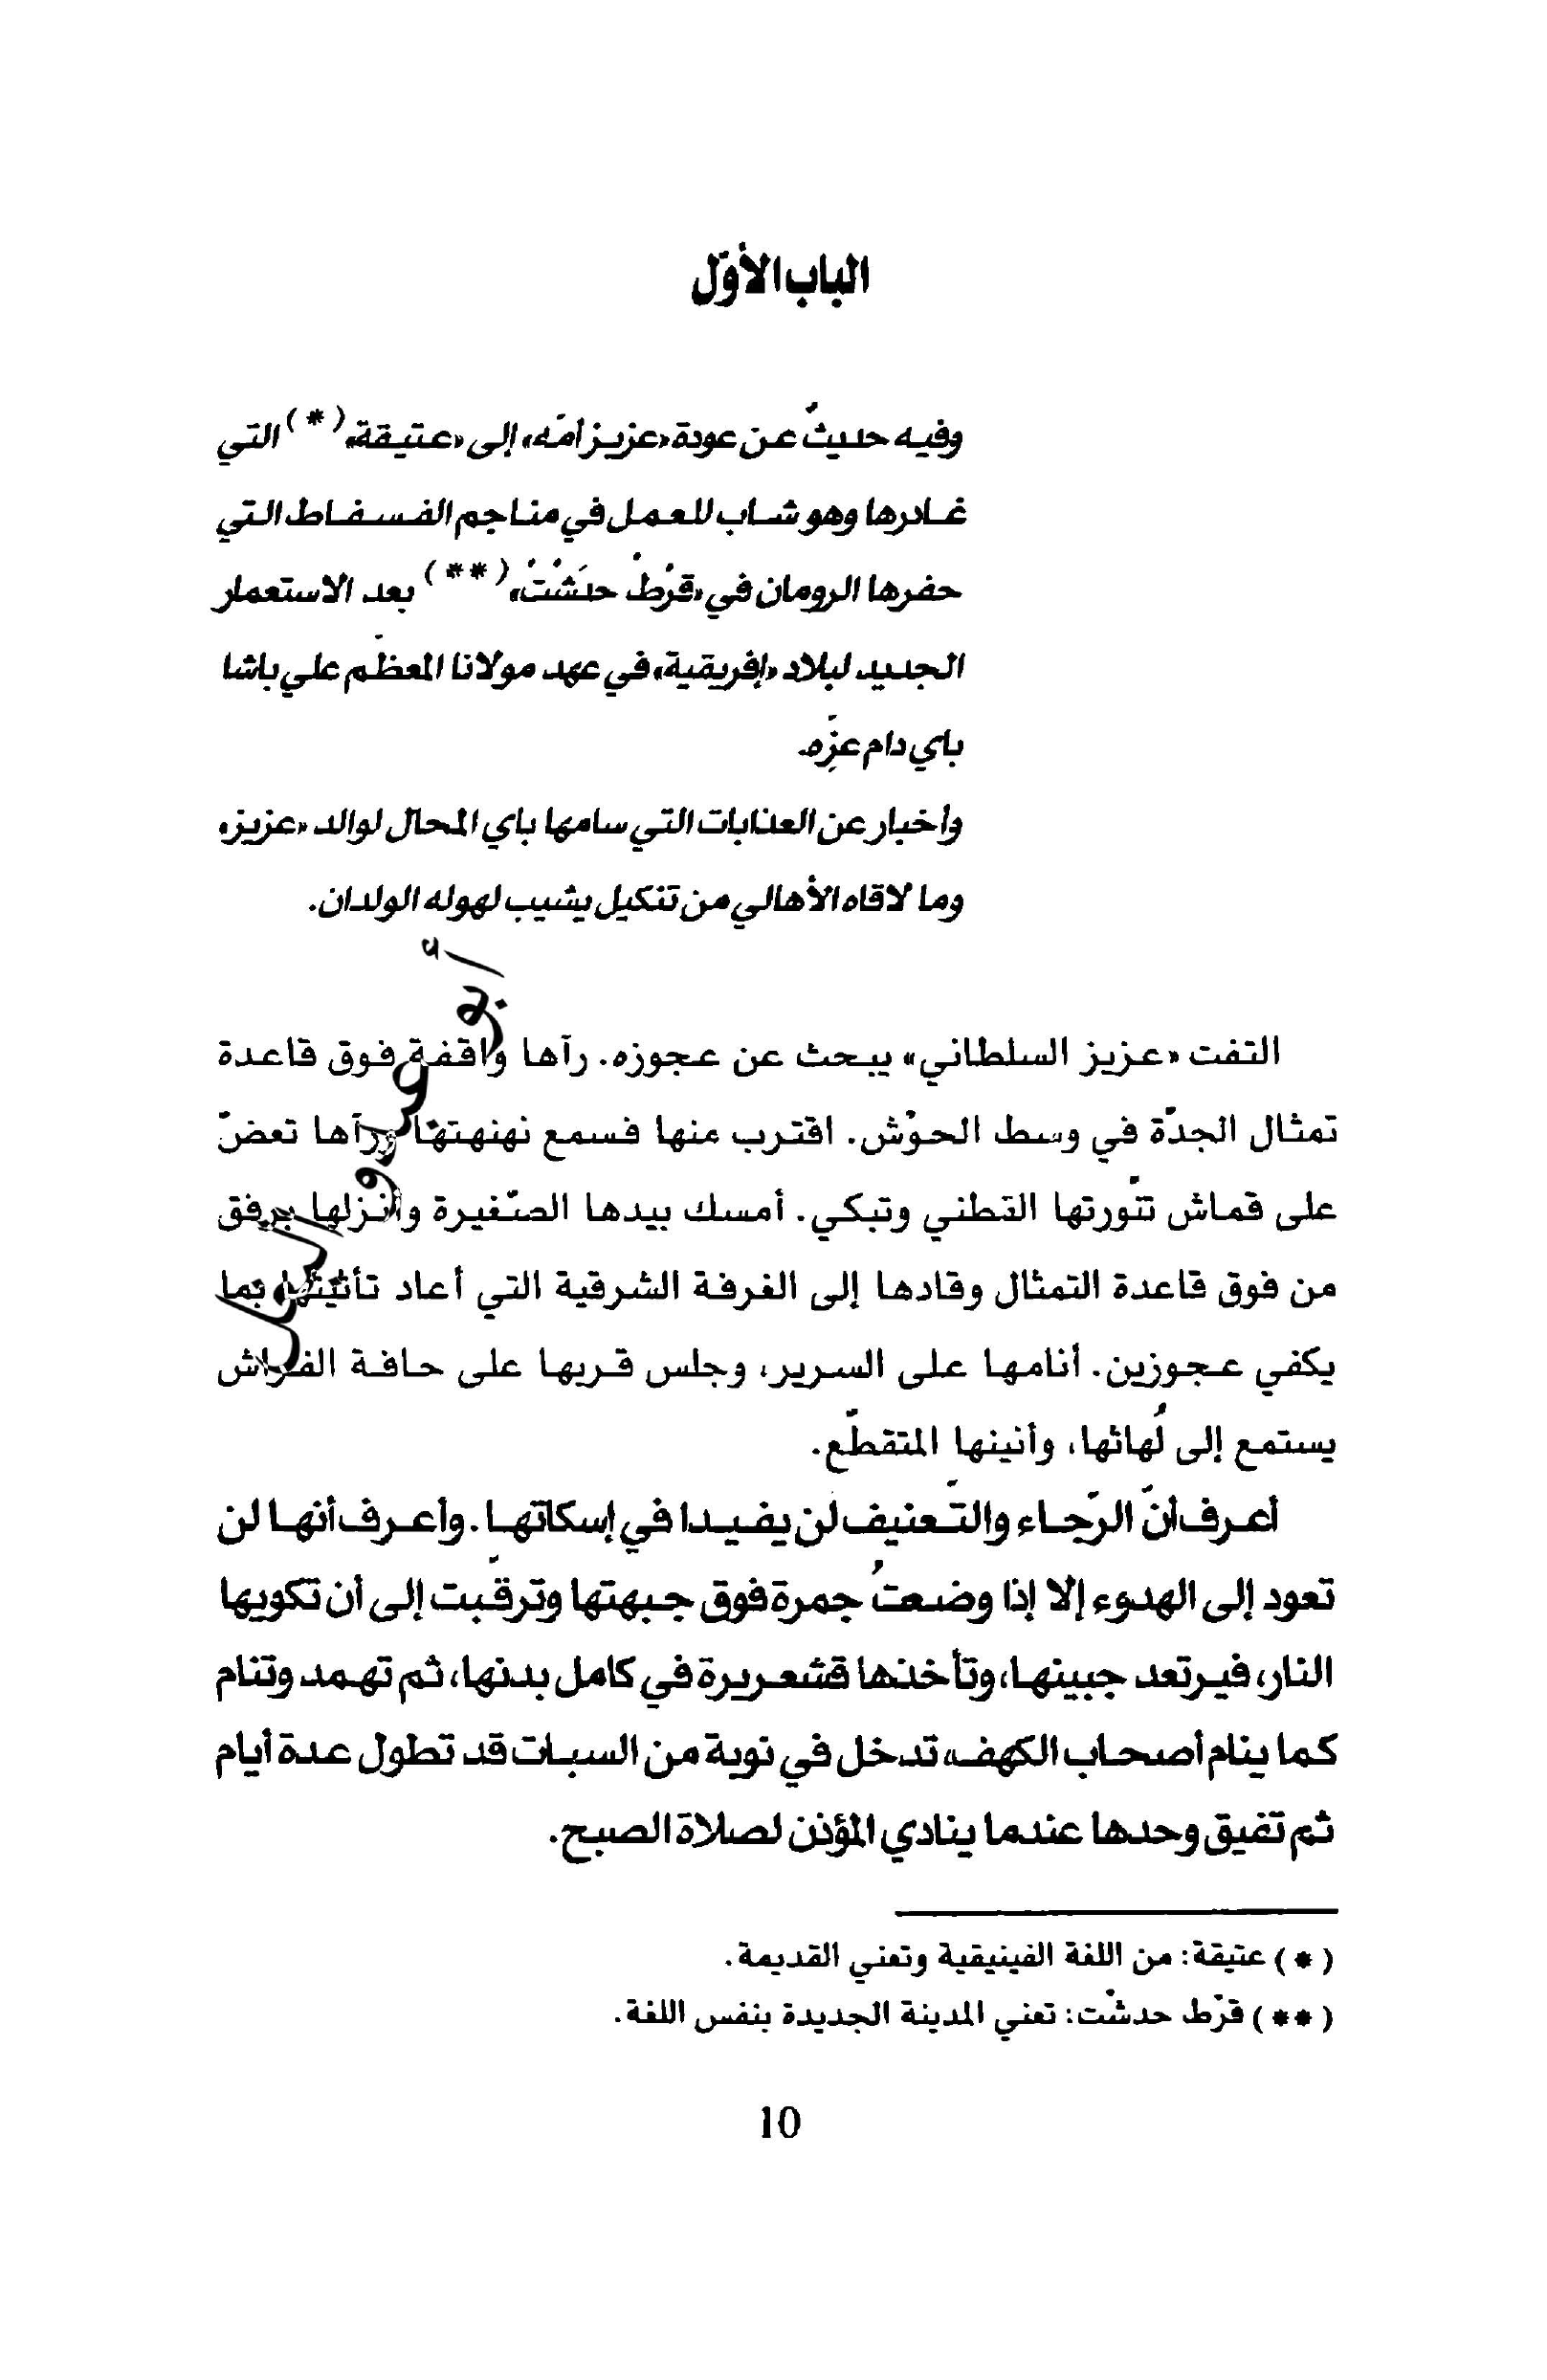 الباب الأوّل
وفيه حديثُ عن عودة «عزيز أمّه» إلى «عتيقة» (*) التي
غادرها وهو شاب للعمل في مناجم الفسفاط التي
حفرها الرومان في «قرْطْ حدَشْتْ» (**) بعد الاستعمار
الجديد لبلاد «إفريقية» في عهد مولانا المعظّم علي باشا
باي دام عزّه.
وأخبار عن العذابات التي سامها باي المحال لوالد «عزيز»
وما لاقاه الأهالي من تنكيل يشيب لهوله الولدان.
التفت «عزيز السلطاني» يبحث عن عجوزه. رآها واقفة فوق قاعدة
تمثال الجدّة في وسط الحوْش. اقترب منها فسمع نهنهتها ورآها تعضّ
على قماش تنّورتها القطني وتبكي. أمسك بيدها الصّغيرة وأنزلها برفق
من فوق قاعدة التمثال وقادها إلى الغرفة الشرقية التي أعاد تأثيثها بما
يكفي عجوزين. أنامها على السرير، وجلس قربها على حافة الفراش
يستمع إلى لُهاثها، وأنينها المتقطّع.
أعرف أنّ الرّجاء والتّعنيف لن يفيدا في إسكاتها. وأعرف أنها لن
تعود إلى الهدوء إلا إذا وضعتُ جمرة فوق جبهتها وترقّبت إلى أن تكويها
النار، فيرتعد جبينها، وتأخذها قشعريرة في كامل بدنها، ثم تهمد وتنام
كما ينام أصحاب الكهف، تدخل في نوبة من السبات قد تطول عدة أيام
ثم تفيق وحدها عندما ينادي المؤذن لصلاة الصبح.
(*) عتيقة: من اللغة الفينيقية وتعني القديمة.
(**) قرْط حدشْت: تعني المدينة الجديدة بنفس اللغة.
10